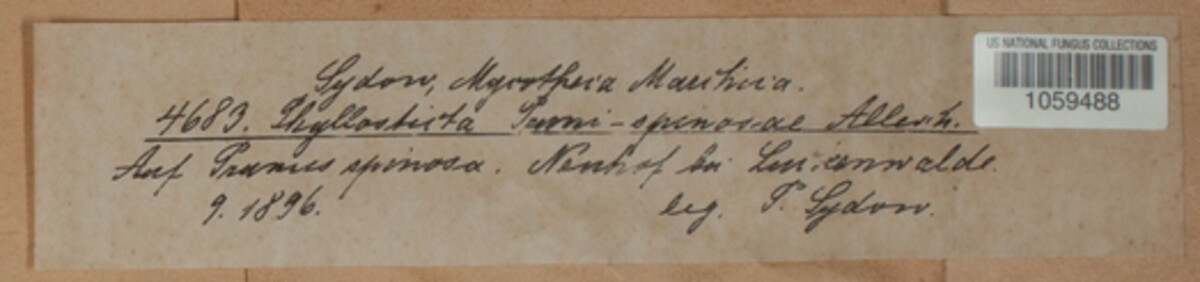 Sydow, Mycotheca Marchica.
4683. Phyllosticta Pruni-spinosae Allesch.
Auf Prunus spinosa. Neuhof bei Luckenwalde.
9. 1896. leg. P. Sydow.
US NATIONAL FUNGUS COLLECTIONS
1059488